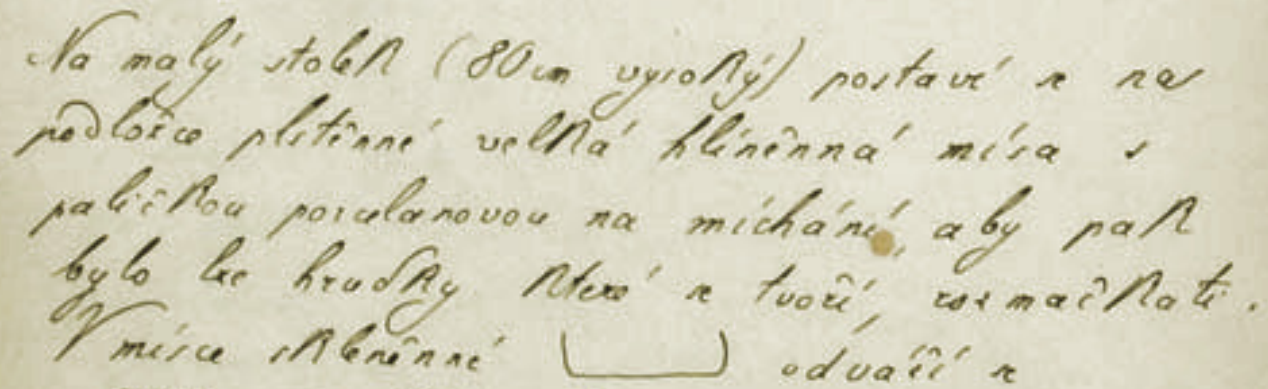 Na malý stolek (80 cm vysoký) postaví se na
podložce plstěnné velká hliněnná mísa s
paličkou porculanovou na míchání, aby pak
bylo lze hrudky které se tvoří, rozmačkati.
V mísce skleněnné odváží se